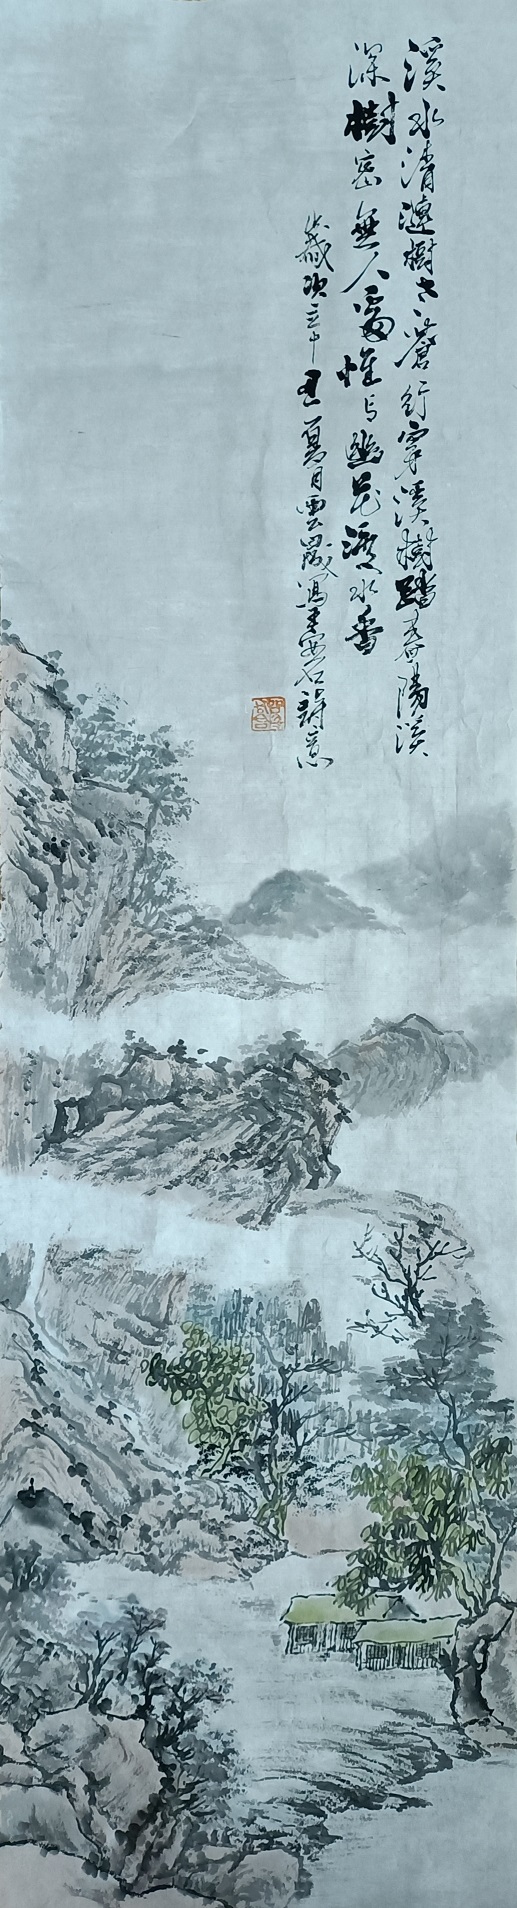 溪水清漣樹老蒼行穿溪樹踏春陽溪
深樹密無人處惟有幽花渡水香
歲次辛丑夏月雲寫王安石詩意